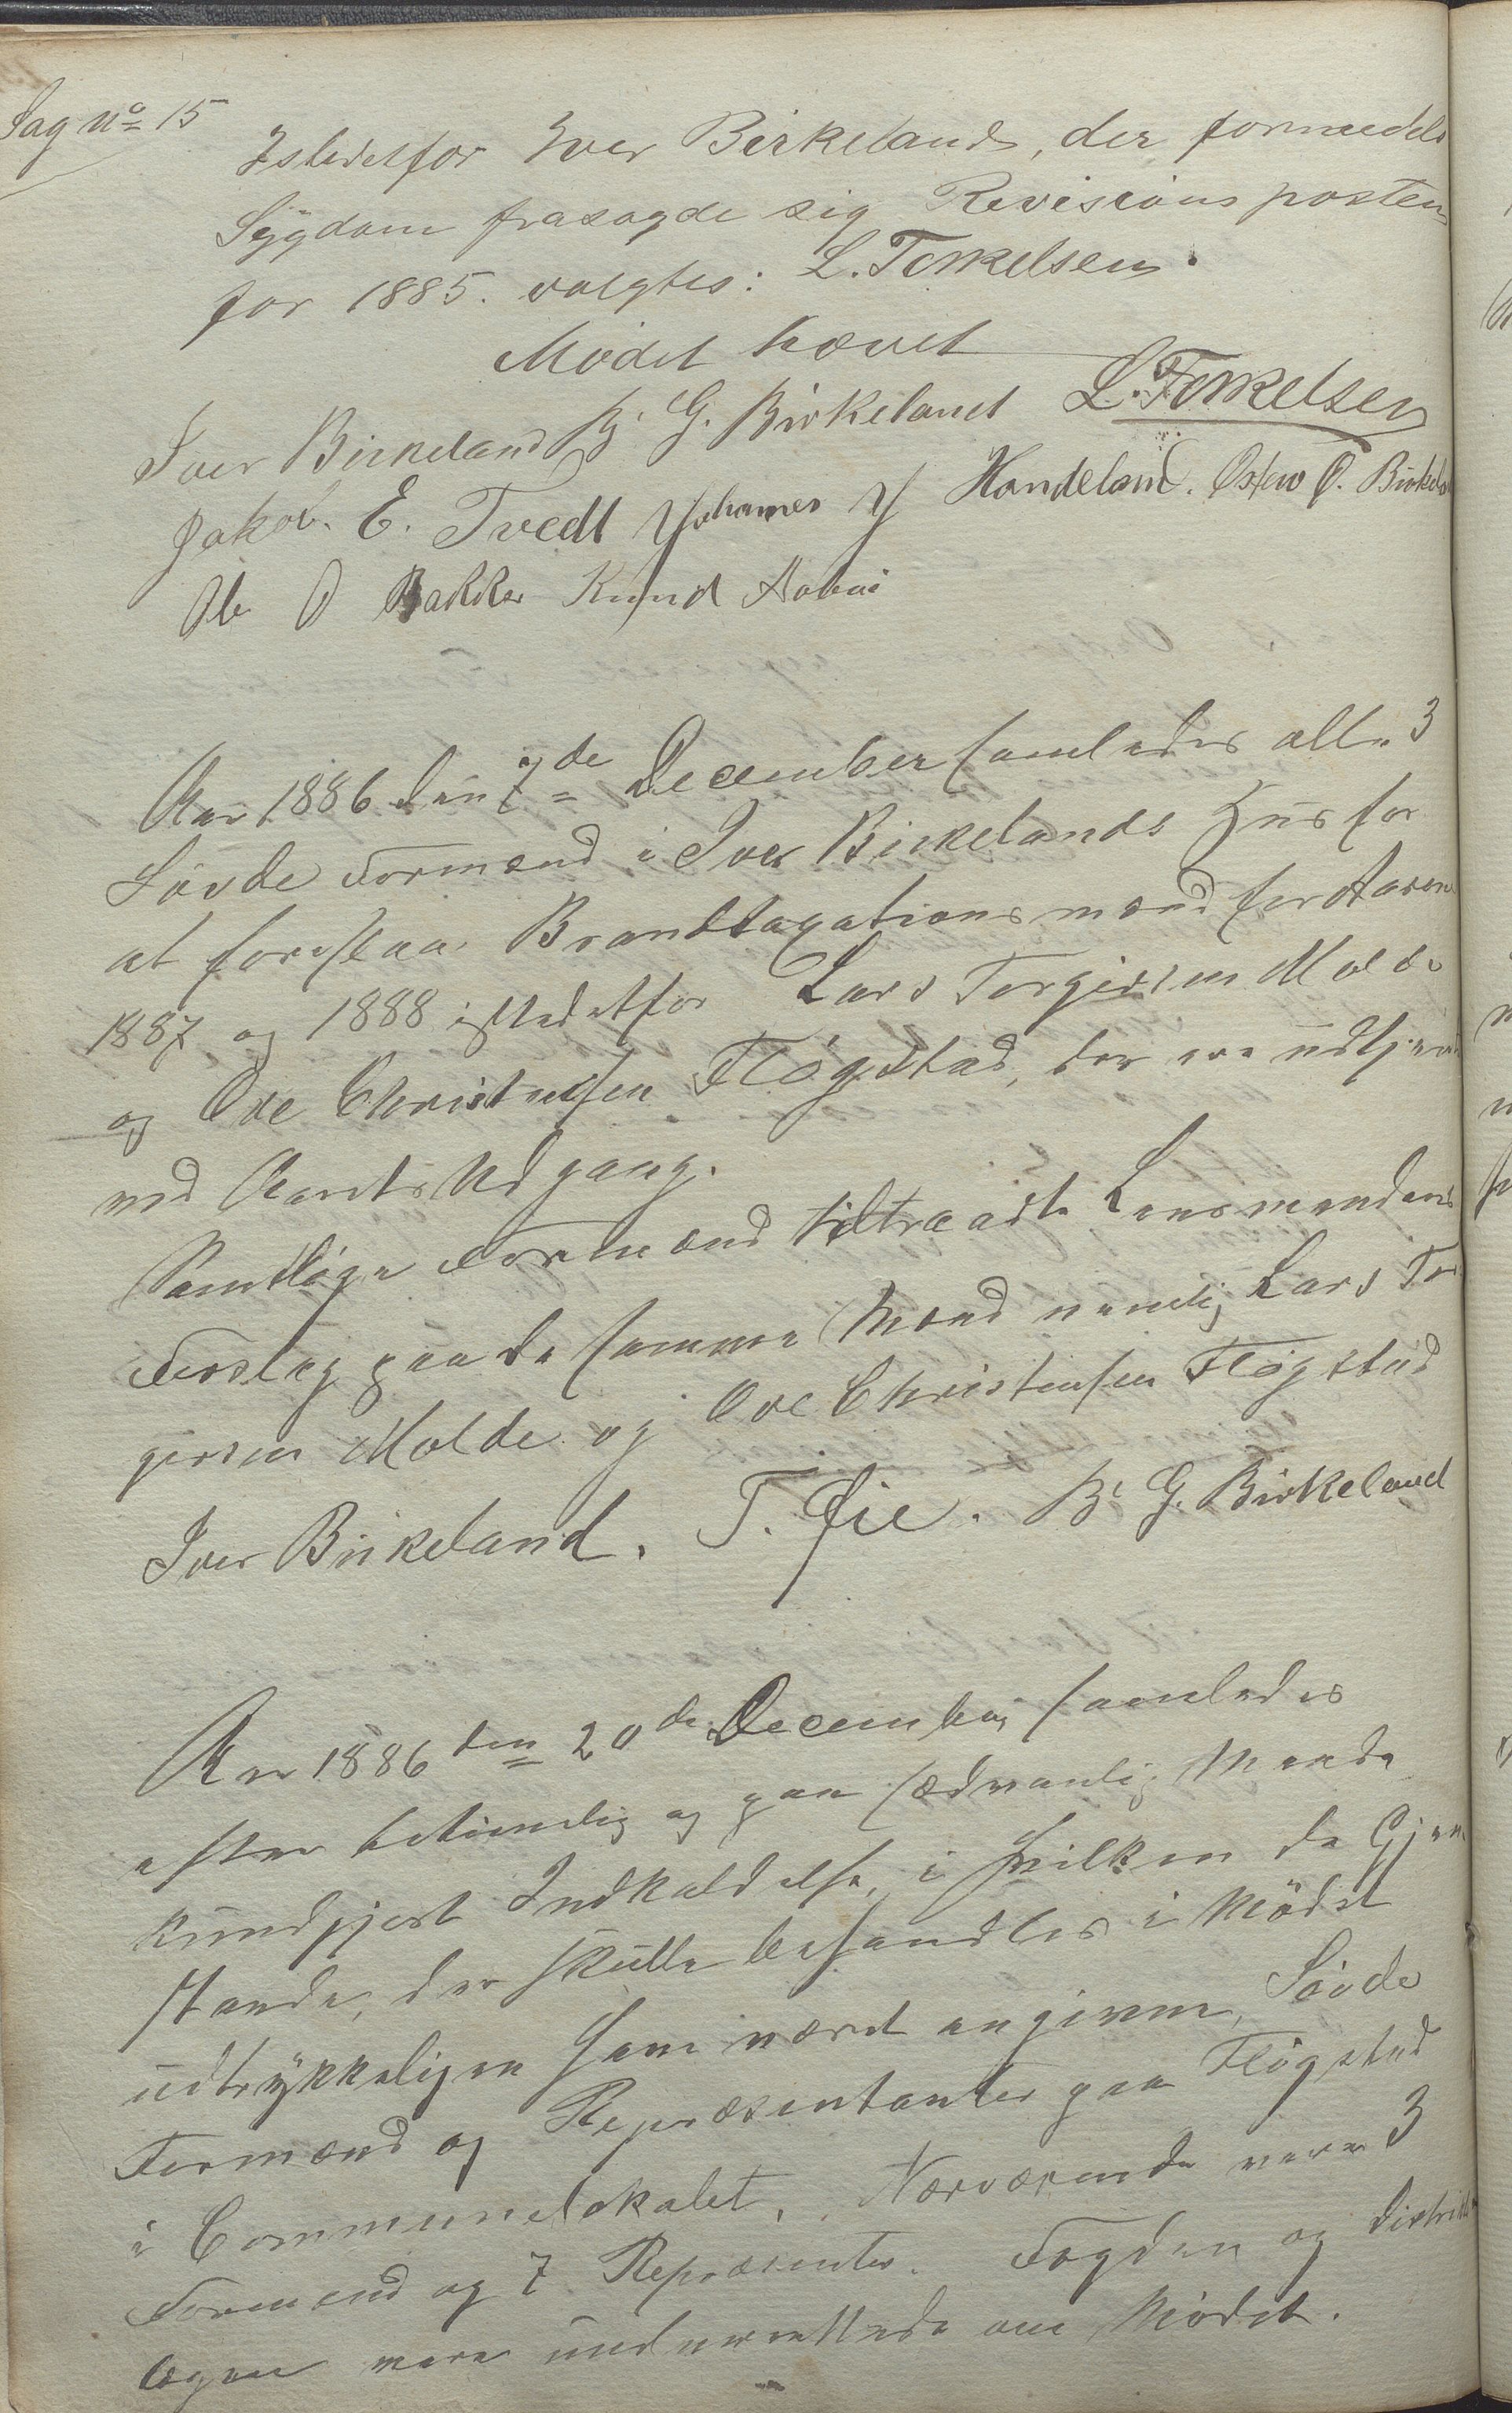 Sag No 15
Istedetfor Iver Birkeland, der formedels
Sygdom frasagde sig Revisions posten
for 1885. valgtes: L. Torkelsen.
Mödet hævet
Iver Birkeland B. G. Birkeland L. Torkelsen
Jakob. E. Tvedt Johannes J Handeland. Osten O. Birkela
Ole O Bakka Knud
Aar 1886 den 7de December samledes alle 3
Søvde Formænd i Iver Birkelands Hus for
at foreslaa Brandtaxationsmænd for Aarene
1887 og 1888 istedetfor Lars Torgersen Molde
og Ole Christensen Fløgstad, der ere udtjent
ved Aarets Udgang.
Samtlige Formænd tiltraadte Lensmandens
Forslag paa de samme Mænd nemlig Lars Tor
gersen Molde og Ole Christensen Fløgstad
Iver Birkeland. T. Øie. B. G. Birkeland
Aar 1886 den 20de December samledes
efter betimelig og paa sædvanlig Maade
kundgjort Indkaldelse, i hvilken de Gjen
stande, der skulle behandles i Mødet
udtrykkeligen have været angivne, Søvde
Formænd og Repræsentanter paa Fløgstad
i Communelokalet. Nærværende vare 3
Formænd og 7 Repræsenter. Fogden og Distrikts
lægen vare underrettede om Mødet.